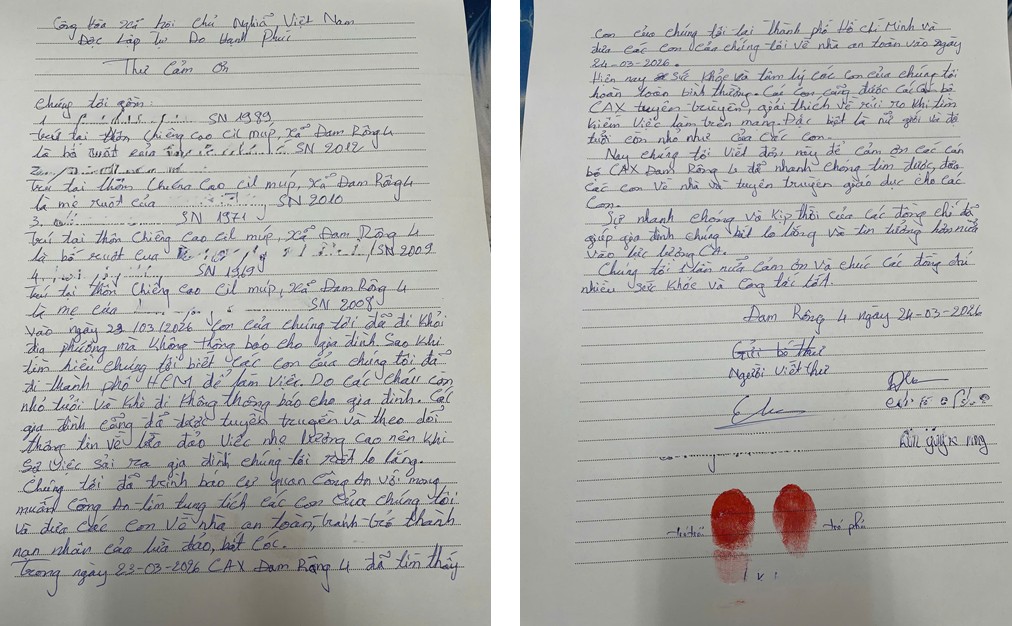 Cộng Hòa Xã Hội Chủ Nghĩa Việt Nam
Độc Lập Tự Do Hạnh Phúc
Thư Cảm Ơn
chúng tôi gồm:
1. SN 1989
trú tại thôn Chiêng Cao Cil Múp, Xã Đam Rông 4
là bố ruột của SN 2012
2.
Trú tại thôn Chiêng Cao Cil Múp, Xã Đam Rông 4
là mẹ ruột của SN 2010
3. SN 1971
Trú tại thôn Chiêng Cao Cil Múp, Xã Đam Rông 4
là bố ruột của SN 2009
4. SN 1969
trú tại thôn Chiêng Cao Cil Múp, Xã Đam Rông 4
là mẹ của SN 2008
Vào ngày /03/2026 con của chúng tôi đã đi khỏi
địa phương mà không thông báo cho gia đình. Sau khi
tìm hiểu chúng tôi biết các con của chúng tôi đã
đi thành phố HCM để làm việc. Do các cháu còn
nhỏ tuổi và khi đi không thông báo cho gia đình. Các
gia đình cũng đã được tuyên truyền và theo dõi
thông tin về lừa đảo việc nhẹ lương cao nên khi
sự việc sải ra gia đình chúng tôi rất lo lắng.
Chúng tôi đã trình báo cơ quan Công An với mong
muốn Công An tìm tung tích các con của chúng tôi
và đưa các con về nhà an toàn, tránh trở thành
nạn nhân của lừa đảo, bắt cóc.
Trong ngày 23-03-2026 CAX Đam Rông 4 đã tìm thấy
con của chúng tôi tại thành phố Hồ Chí Minh và
đưa các con của chúng tôi về nhà an toàn vào ngày
24-03-2026.
Hiện nay sức khỏe và tâm lý các con của chúng tôi
hoàn toàn bình thường. Các con cũng được các cán bộ
CAX tuyên truyền, giải thích về rủi ro khi tìm
kiếm việc làm trên mạng. Đặc biệt là nữ giới và độ
tuổi còn nhỏ như của các con.
Nay chúng tôi viết đơn này để cảm ơn các cán
bộ CAX Đam Rông 4 đã nhanh chóng tìm được, đưa
các con về nhà và tuyên truyền giáo dục cho các
con.
Sự nhanh chóng và kịp thời của các đồng chí đã
giúp gia đình chúng bớt lo lắng và tin tưởng hơn nữa
vào lực lượng CA.
Chúng tôi 1 lần nữa cảm ơn và chúc các đồng chí
nhiều sức khỏe và công tác tốt.
Đam Rông 4 ngày 24-03-2026
Người viết thư